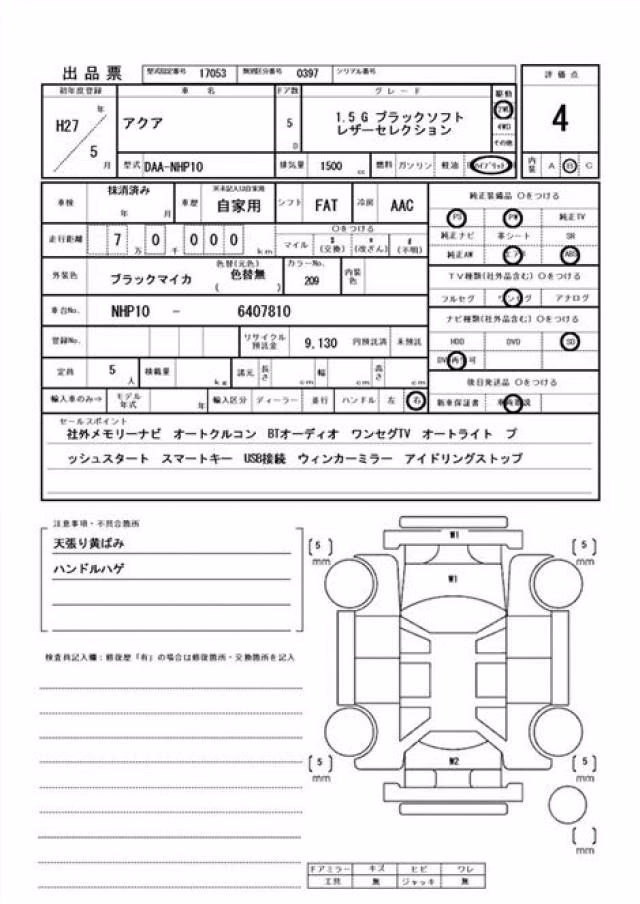 出品票 型式指定番号 17053 類別区分番号 0397 シリアル番号
評価点
4
初年度登録 車名 ドア数 グレード 駆動
H27 年 5 月
アクア
5 D
1.5 G ブラックソフト
レザーセレクション
2WD
4WD
その他
型式 DAA-NHP10 排気量 1500 cc 燃料 ガソリン 軽油 ハイブリッド 内装 A B C
車検 抹消済み 年 月 車歴 未記入は自家用 自家用 シフト FAT 冷房 AAC
走行距離 7 万 0 千 0 0 0 km
○をつける
マイル $(交換) *(改ざん) #(不明)
外装色 ブラックマイカ 色替(元色) 色替無 ( ) カラーNo. 209 内装色
車台No. NHP10 - 6407810
登録No. リサイクル預託金 9,130 円預託済 未預託
定員 5 人 積載量 kg 諸元 長さ cm 幅 cm 高さ cm
輸入車のみ⇒ モデル年式 年 輸入区分 ディーラー 並行 ハンドル 左 右
純正装備品 ○をつける
PS PW 純正TV
純正ナビ 革シート SR
純正AW エアB ABS
TV種類(社外品含む) ○をつける
フルセグ ワンセグ アナログ
ナビ種類(社外品含む) ○をつける
HDD DVD SD
DVD再生可
後日発送品 ○をつける
新車保証書
セールスポイント
社外メモリーナビ オートクルコン BTオーディオ ワンセグTV オートライト プ
ッシュスタート スマートキー USB接続 ウィンカーミラー アイドリングストップ
注意事項・不具合箇所
天張り黄ばみ
ハンドルハゲ
検査員記入欄：修復歴「有」の場合は修復箇所・交換箇所を記入
W1
[5] mm [5] mm
W1
W2
[5] mm [5] mm
[ ] mm
ドアミラー キズ ヒビ ワレ
工具 無 ジャッキ 無